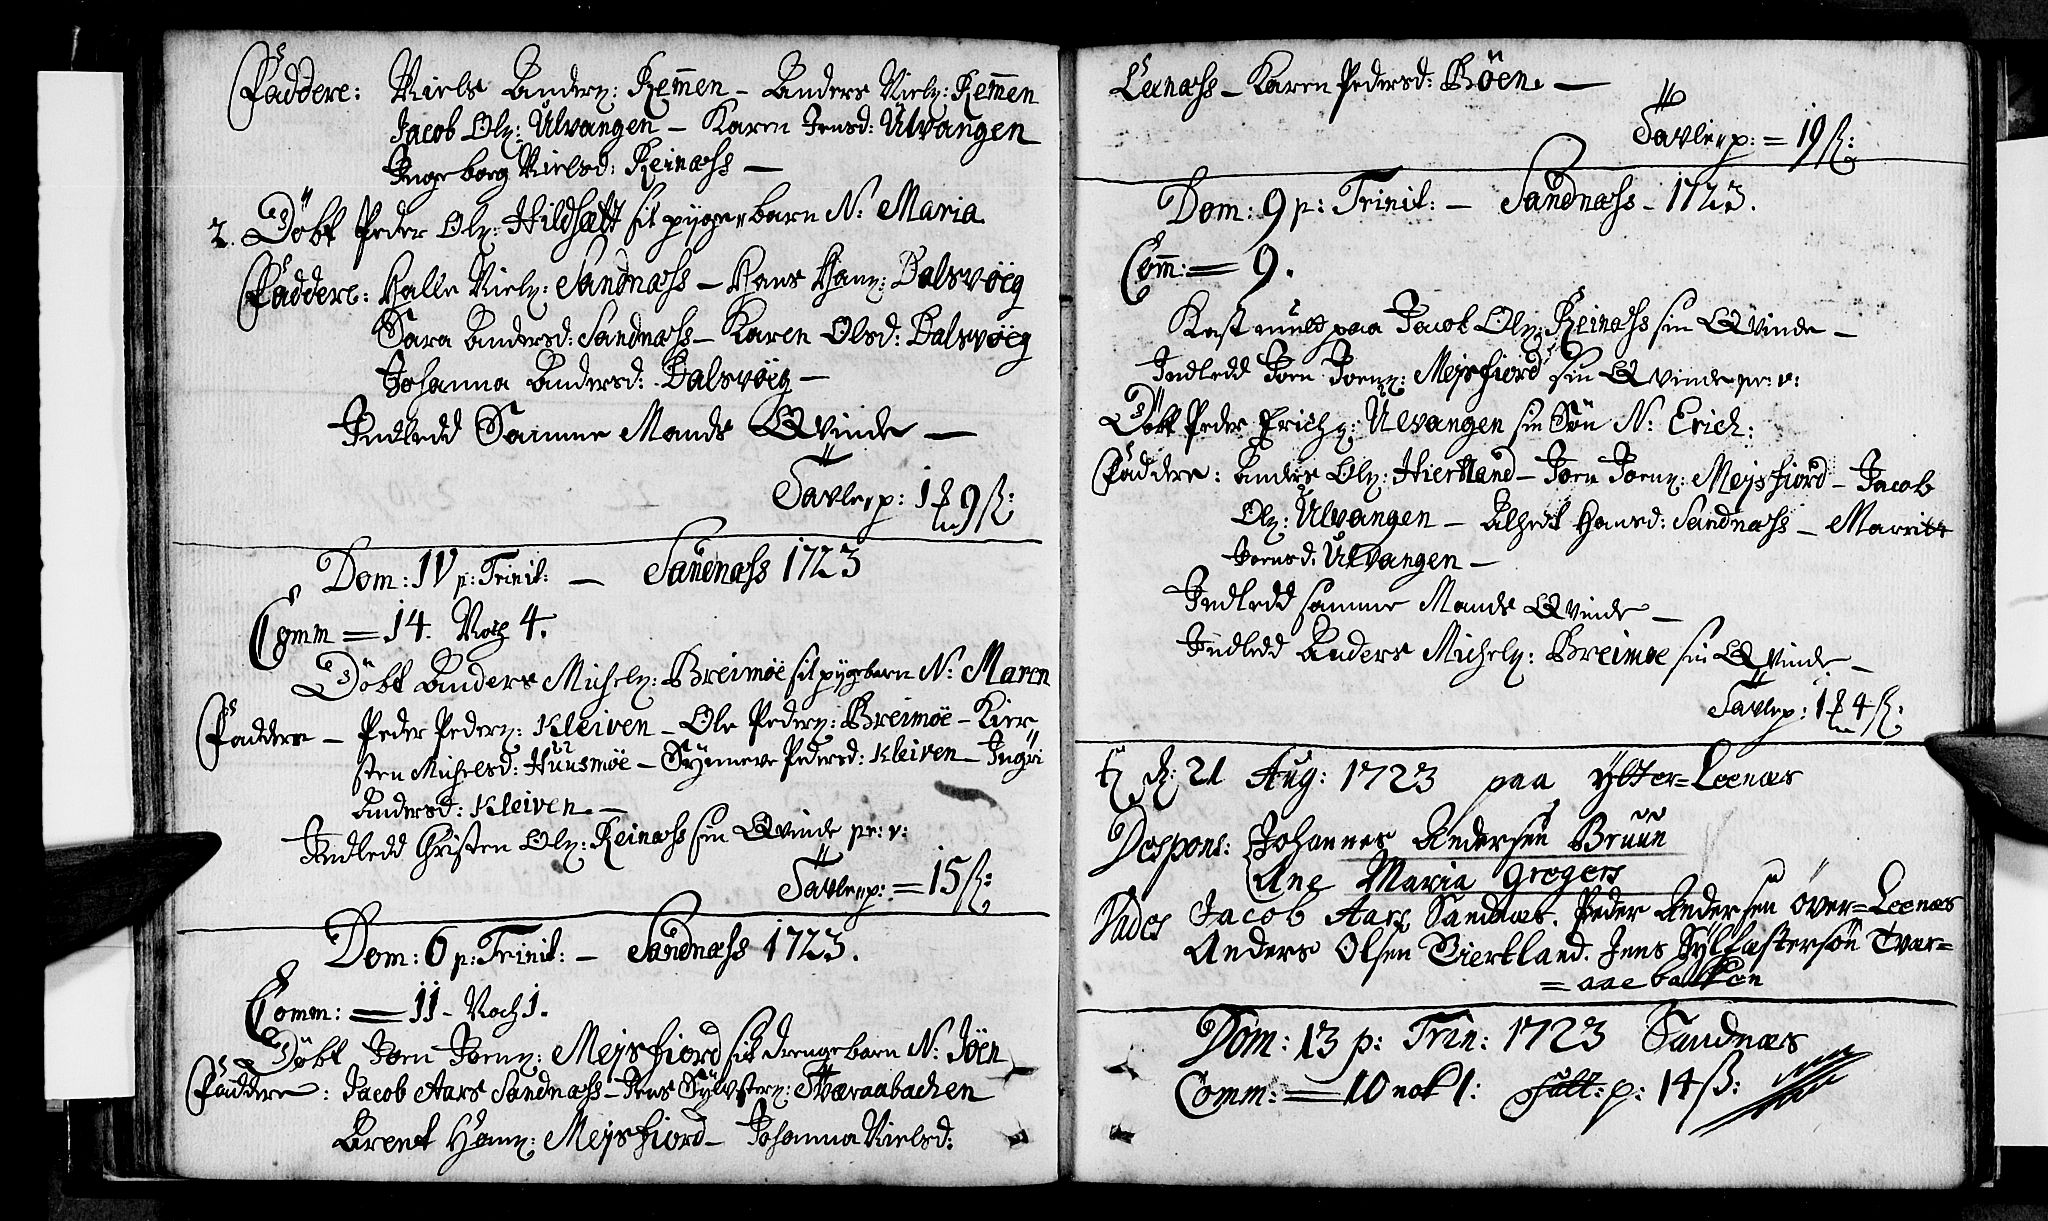 Faddere: Niels Anders: Remmen – Anders Niels: Remmen
Jacob Ols: Ulvangen – Karen Jensd: Ulvangen
Ingeborg Nielsd: Reinæss –
2. Döbt Peder Ols: Hildsætt sit pygebarn N: Maria
Faddere: Halle Niels: Sandnæss – Hans Hans: Dalsvöeg
Sara Andersd: Sandnæss – Karen Olsd: Dalsvöeg
Johanna Andersd: Dalsvöeg –
Indledd Samme Mands Qvinde –
Tavlep: 1 9 ß:
Dom: IV p: Trinit: – Sandnæss 1723
Comm = 14. Noch 4.
Döbt Anders Michels: Breimöe sit pygebarn N: Maren
Faddere – Peder Peders: Kleiven – Ole Peders: Breimöe – Kier
sten Michelsd: Huusmöe – Synneve Pedersd: Kleiven – Ingri
Andersd: Kleiven –
Indledd Christen Ols: Reinæss sin Qvinde pr: v:
Tavlep: = 15 ß:
Dom: 6 p: Trinit: – Sandnæss 1723.
Comm: = 11 – Noch 1.
Döbt Joen Joens: Meysfiord sit drengebarn N: Jöen
Faddere: Jacob Aars Sandnæss – Jens Sylvsters: Tværaabachen
Arent Hans: Meysfiord – Johanna Nielsd:
Leenæss – Karen Pedersd: Böen –
Tavlep: = 19 ß:
Dom: 9 p: Trinit: – Sandnæss – 1723.
Comm: = 9.
Kast muld paa Jacob Ols: Reinæss sin Qvinde –
Indledd Joen Joens: Meysfiord sin Qvinde pr: v:
Döbt Peder Erichs: Ulvangen sin Sön N: Erich:
Faddere: Anders Ols: Hiertland – Joen Joens: Meysfiord – Jacob
Ols: Ulvangen – Alhedt Hansd: Sandnæss – Marrite
Joensd: Ulvangen –
Indledd samme Mands Qvinde –
Indledd Anders Michels: Breimoe sin Qvinde –
Tavlep: 1 4 ß:
d: 21 Aug: 1723 paa Ytter=Leenæs
Despons: Johannes Andersen Bruun
Ane Maria Gregers
Fides Jacob Aars Sandnæs. Peder Andersen Över=Leenæs
Anders Olsen Hiertland. Jens Sylfæstersön Tvær=
=aaebakken
Dom: 13 p: Trin: 1723 Sandnæs
Comm: = 10 nok 1: p: 14 ß: